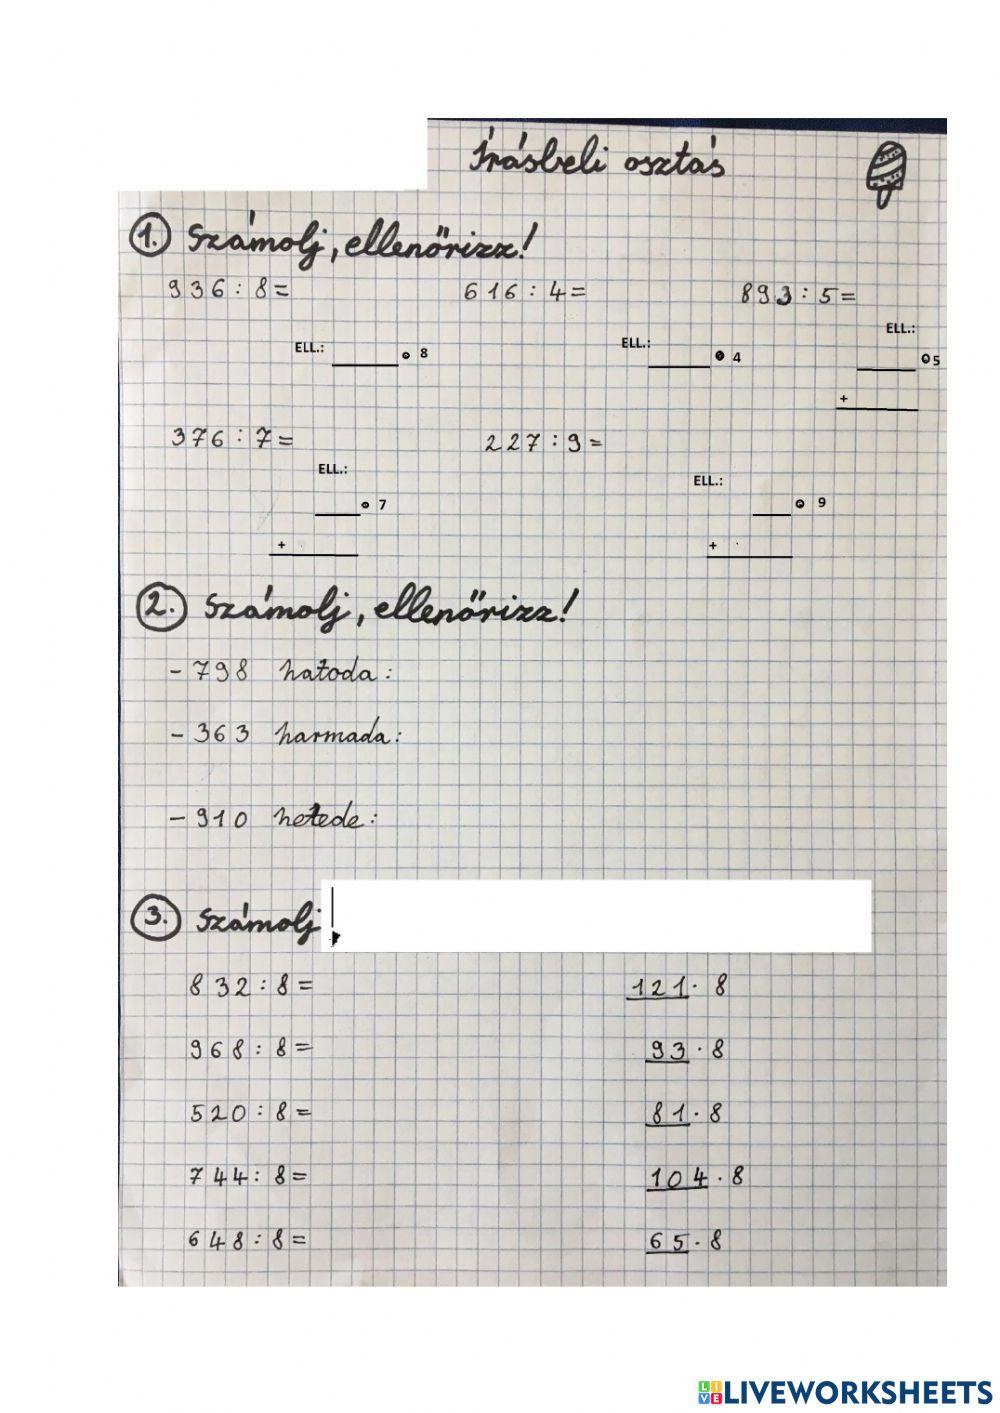 Írásbeli osztás
1. Számolj, ellenőrizz!
936 : 8 = 616 : 4 = 893 : 5 =
ELL.: ELL.: ELL.:
• 8 • 4 • 5
+
376 : 7 = 227 : 9 =
ELL.: ELL.:
• 7 • 9
+ +
2. Számolj, ellenőrizz!
- 798 hatoda :
- 363 harmada :
- 910 hetede :
3. Számolj
832 : 8 = 121 · 8
968 : 8 = 93 · 8
520 : 8 = 81 · 8
744 : 8 = 104 · 8
648 : 8 = 65 · 8
LIVEWORKSHEETS